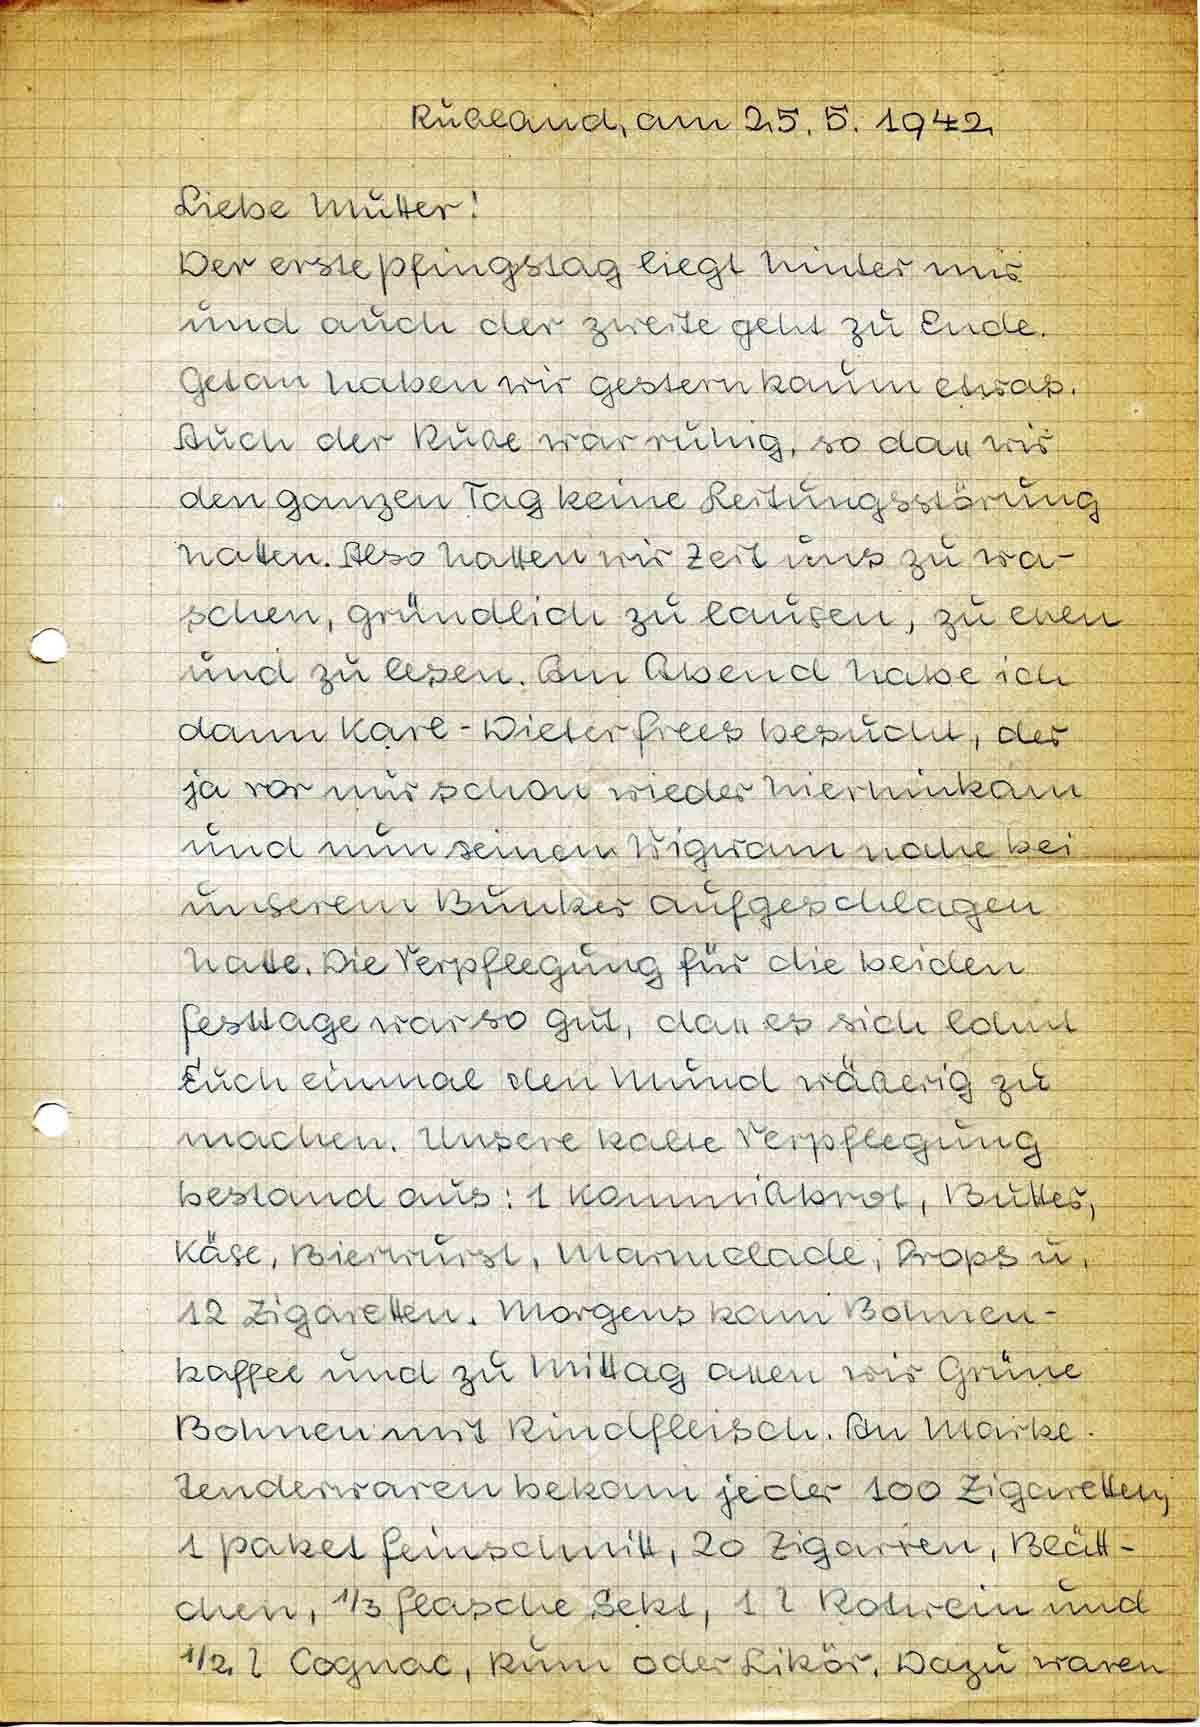 Rußland, am 25. 5. 1942.
Liebe Mutter!
Der erste Pfingstag liegt hinter mir
und auch der zweite geht zu Ende.
Getan haben wir gestern kaum etwas.
Auch der Ruße war ruhig, so daß wir
den ganzen Tag keine Leitungsstörung
hatten. Also hatten wir Zeit uns zu wa-
schen, gründlich zu lausen, zu eßen
und zu lesen. Am Abend habe ich
dann Karl-Dieter Frees besucht, der
ja vor mir schon wieder hierhinkam
und nun seinem Wigwam nahe bei
unserem Bunker aufgeschlagen
hatte. Die Verpflegung für die beiden
Festtage war so gut, daß es sich lohnt
Euch einmal den Mund wäßerig zu
machen. Unsere kalte Verpflegung
bestand aus: 1 Kommißbrot, Butter,
Käse, Bierwurst, Marmelade, Drops u.
12 Zigaretten. Morgens kam Bohnen-
kaffee und zu Mittag aßen wir Grüne
Bohnen mit Rindfleisch. An Marke-
tenderwaren bekam jeder 100 Zigaretten,
1 Paket Feinschnitt, 20 Zigarren, Blätt-
chen, 1/3 Flasche Sekt, 1 l Rotwein und
1/2 l Cognac, Rum oder Likör. Dazu waren